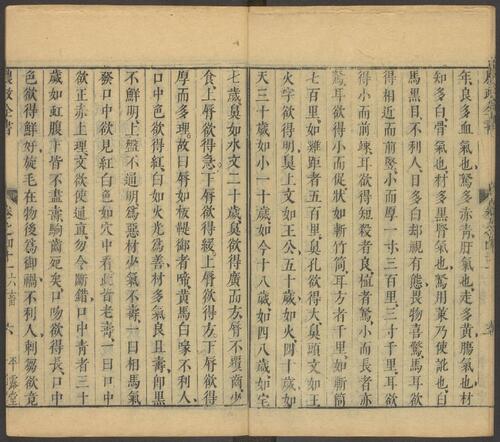 年良多血氣也驚多赤青肝氣也走多黃腸氣也材
知多白骨氣也材多黑腎氣也駑用策乃使訛也白
馬黑目不利人目多白却視有態畏物喜驚馬耳欲
得相近而前豎小而厚一寸三百里三寸千里耳欲
得小而前竦耳欲得短殺者良植者駑小而長者亦
駑耳欲得小而促狀如斬竹筒耳方者千里如斬筒
七百里如雞距者五百里鼻孔欲得大鼻頭文如王
火字欲得明鼻上文如王公五十歲如火四十歲如
天三十歲如小二十歲如今十八歲如四八歲如宅
七歲鼻如水文二十歲鼻欲得廣而方脣不覆齒少
食上脣欲得急下脣欲得緩上脣欲得方下脣欲得
厚而多理故曰脣如板鞮御者啼黃馬白喙不利人
口中色欲得紅白如火光爲善材多氣良且壽卽黑
不鮮明上盤不通明爲惡材少氣不壽一曰相馬氣
發口中欲見紅白色如穴中看此皆老壽一曰口中
欲正赤上理文欲使通直勿令斷錯口中青者三十
歲如虹腹下皆不盡壽駒齒死矣口吻欲得長口中
色欲得鮮好旋毛在物後爲御禍不利人刺芻欲竟
農政全書 卷之四十一 六畜 六 平露堂